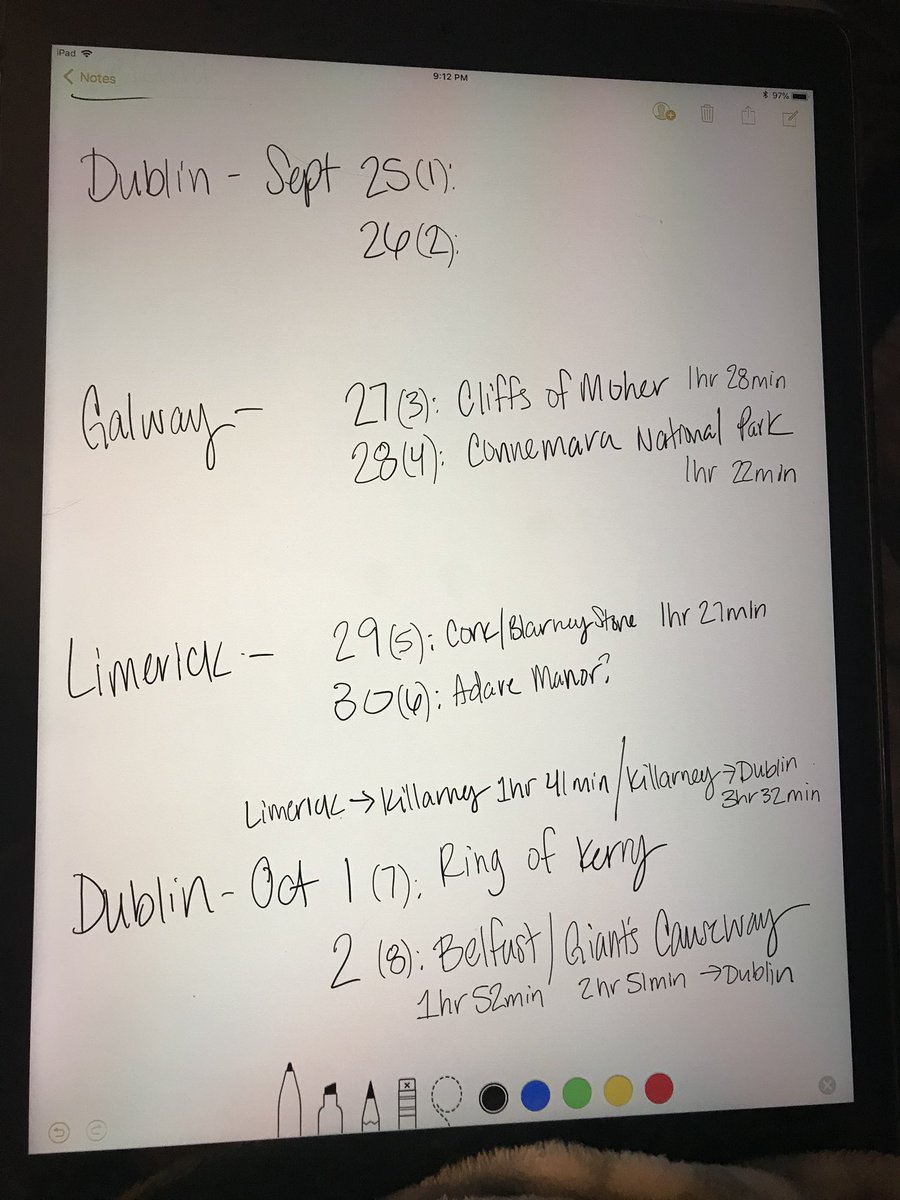 iPad
Notes
9:12 PM
97%
Dublin - Sept 25(1):
26(2):
Galway - 27(3): Cliffs of Moher 1hr 28min
28(4): Connemara National Park
1hr 22min
Limerick - 29(5): Cork/Blarney Stone 1hr 27min
30(6): Adare Manor?
Limerick → Killarney 1hr 41min / Killarney → Dublin
3hr 32min
Dublin - Oct 1 (7): Ring of Kerry
2 (8): Belfast/Giant's Causeway
1hr 52min 2hr 51min → Dublin